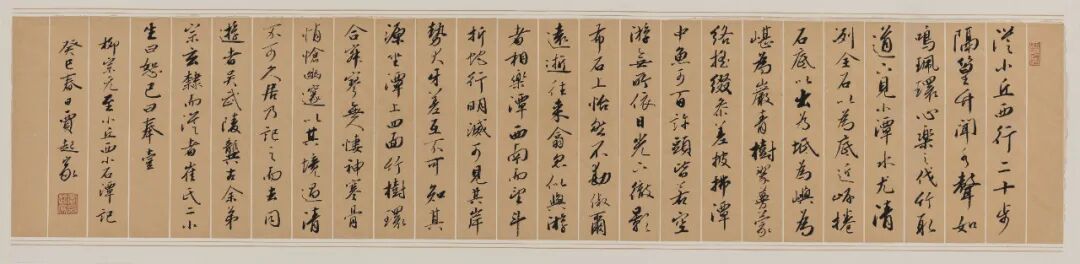 從小丘西行二十步
隔篁竹聞水聲如
鳴珮環心樂之伐竹取
道下見小潭水尤清
冽全石以為底近岸捲
石底以出為坻為嶼為
嵁為巖青樹翠蔓蒙
絡搖綴參差披拂潭
中魚可百許頭皆若空
游無所依日光下徹影
布石上怡然不動俶爾
遠逝往來翕忽似與游
者相樂潭西南而望斗
折蛇行明滅可見其岸
勢犬牙差互不可知其
源坐潭上四面竹樹環
合寂寥無人悽神寒骨
悄愴幽邃以其境過清
不可久居乃記之而去同
遊者吳武陵龔古余弟
宗玄隸而從者崔氏二小
生曰恕己曰奉壹
柳宗元至小丘西小石潭記
癸巳春日賈起家